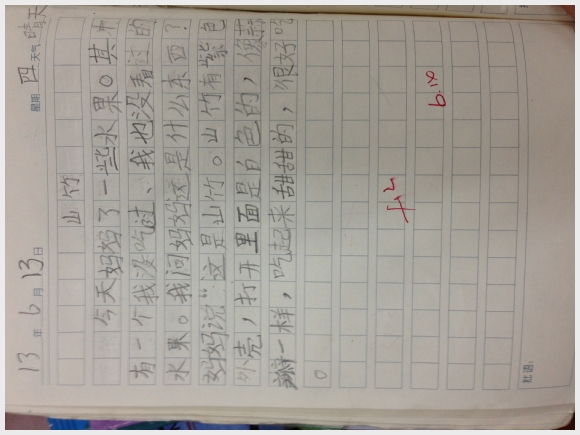 13年6月13日 星期四 天气晴天
山竹
今天妈妈了一些水果。其中
有一个我没吃过、我也没看过的
水果。我问妈妈这是什么东西?
妈妈说“这是山竹。山竹有紫色
外壳,打开里面是白色的,像蒜
瓣一样,吃起来甜甜的,很好吃
。
6.18
批语: